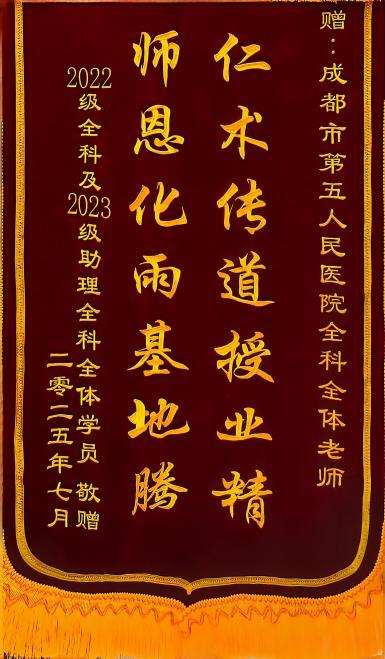 赠：成都市第五人民医院全科全体老师
仁术传道授业精
师恩化雨基地腾
2022级全科及2023级助理全科全体学员 敬赠
二零二五年七月